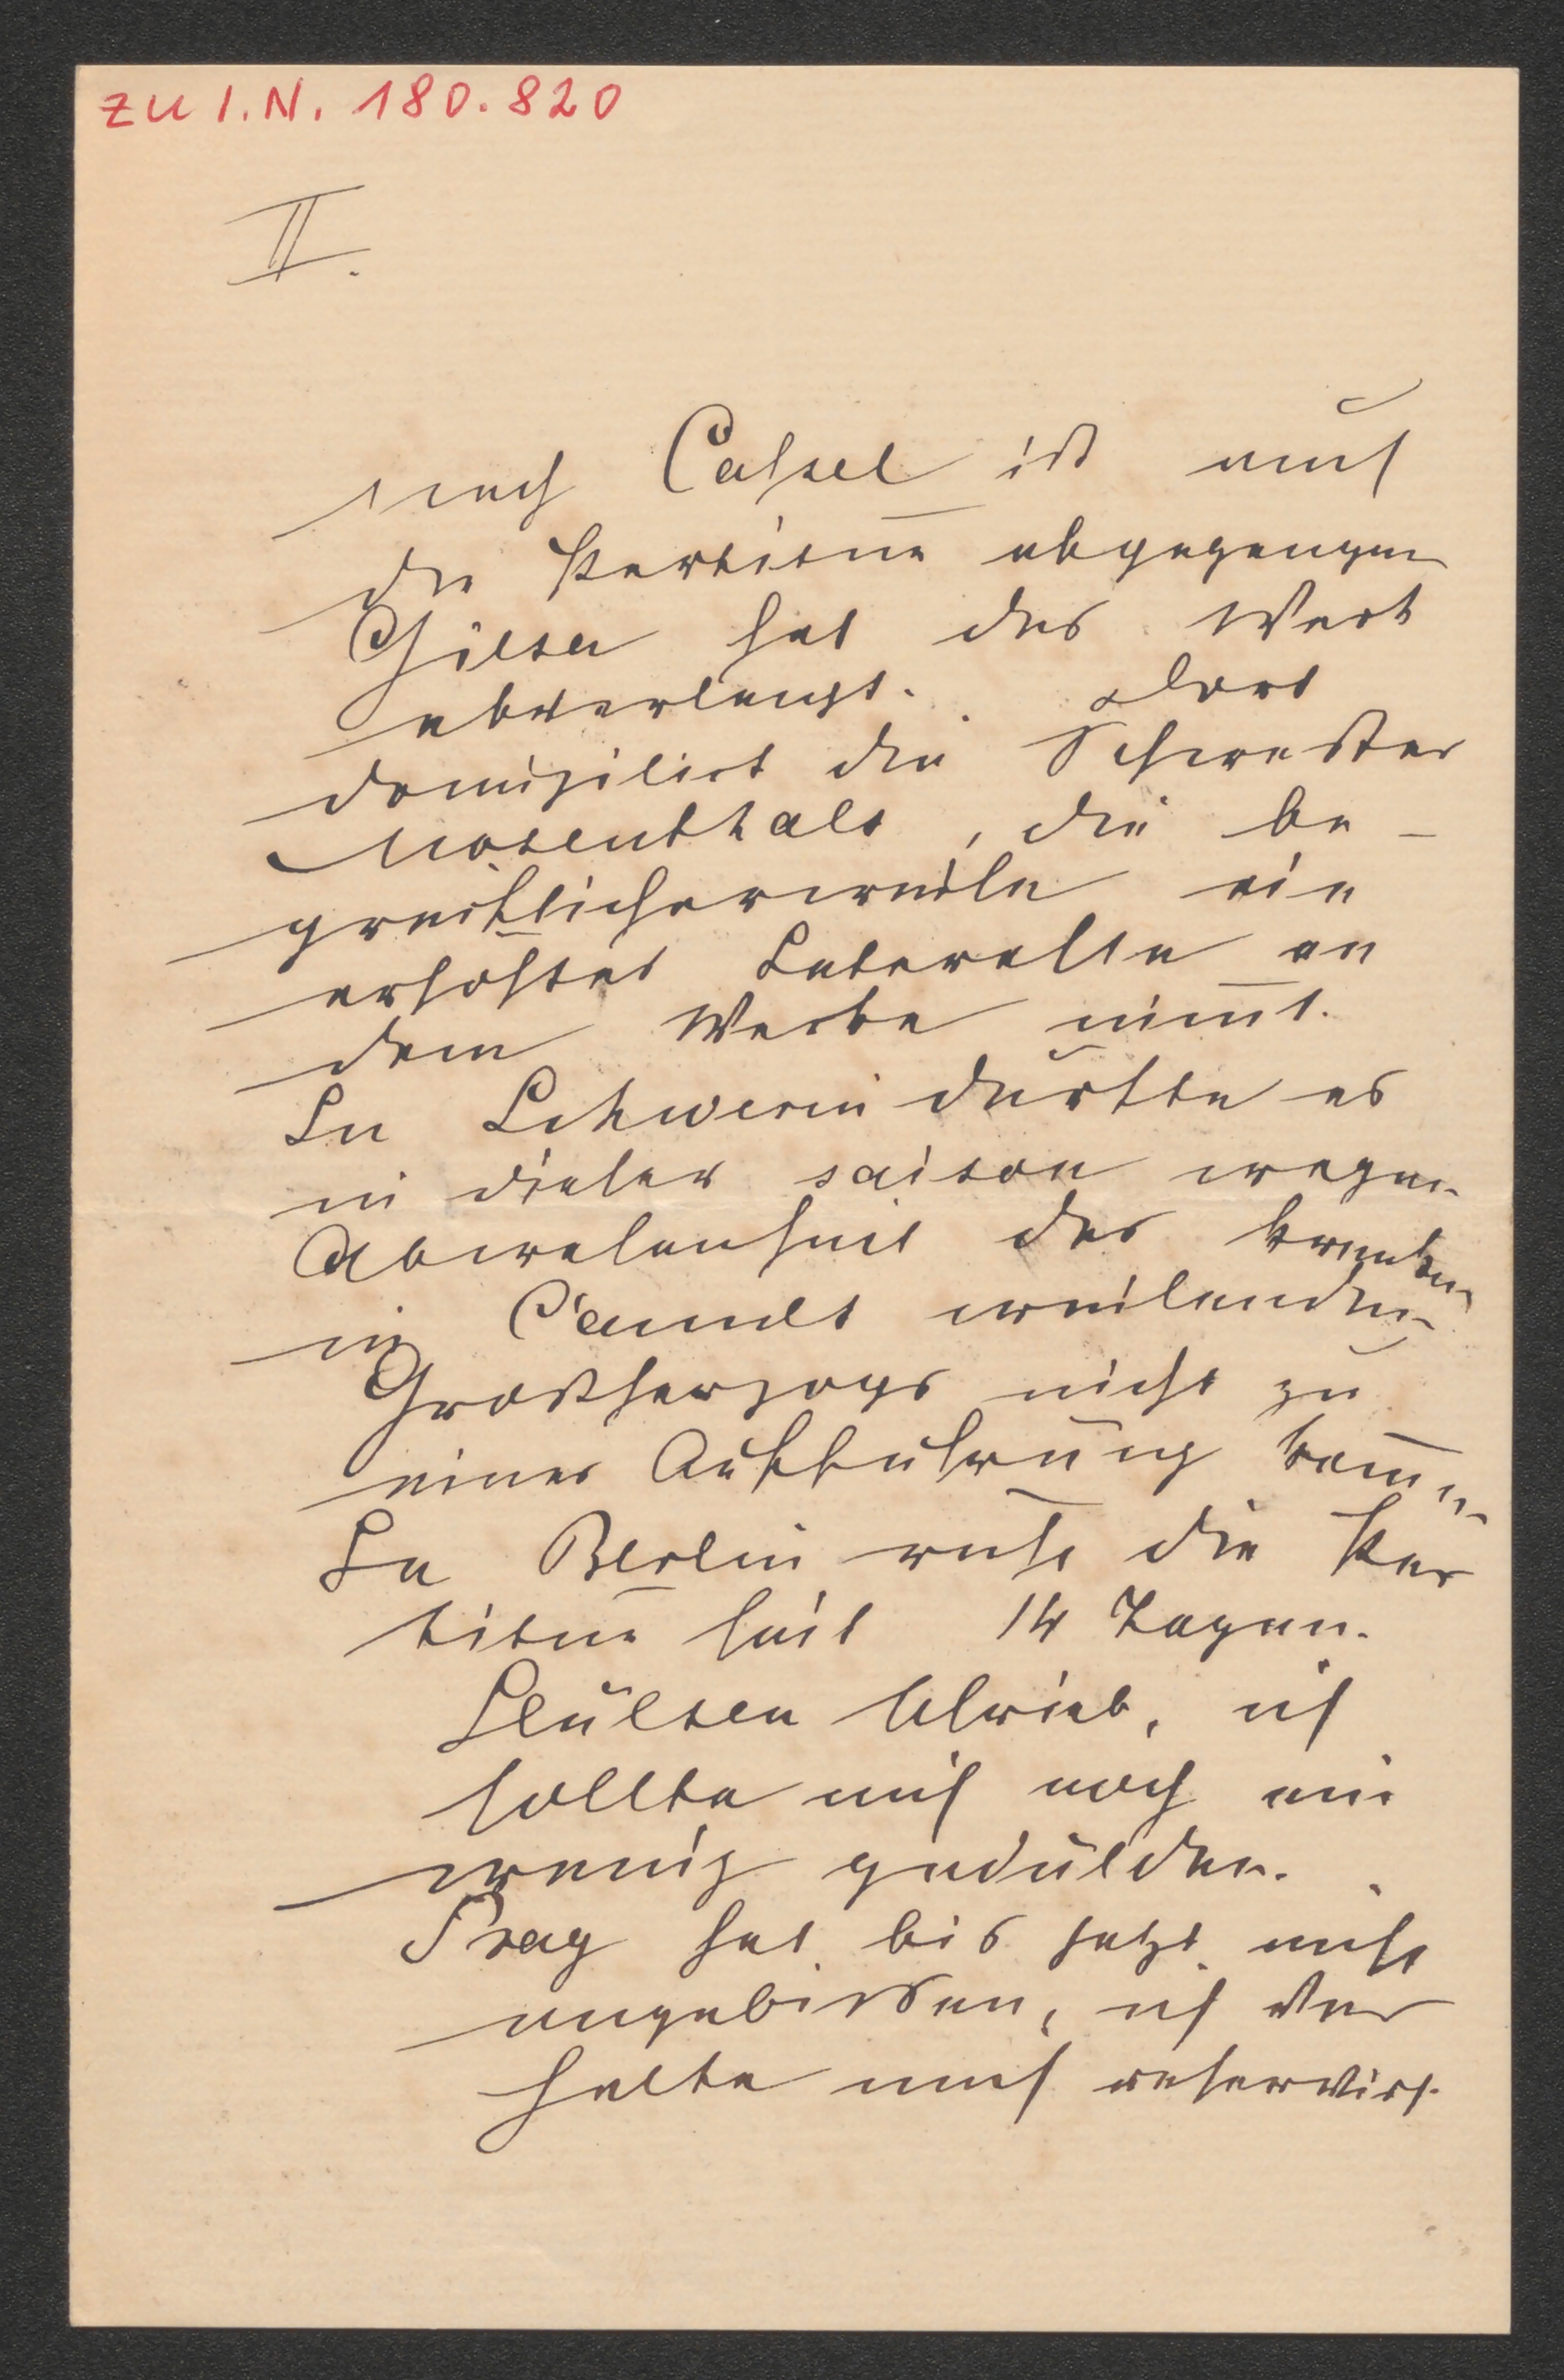 zu I.N. 180.820
II.
nach Cassel ist auch
die Partitur abgegangen
Gilsa hat das Werk
abverlangt. Dort
domizilirt die Schwester
Mosenthals, die be-
greiflicherweise ein
erhöhtes Interesse an
dem Werke nim̄t.
In Schwerin dürfte es
in dieser saison wegen
Abwesenheit des kranken
in Cannes weilenden
Großherzogs nicht zu
einer Aufführung kom̄en
In Berlin ruht die Par
titur seit 14 Tagen.
Hülsen schrieb, ich
sollte mich noch ein
wenig gedulden.
Prag hat bis jetzt nicht
angebissen, ich ver
halte mich reservirt.